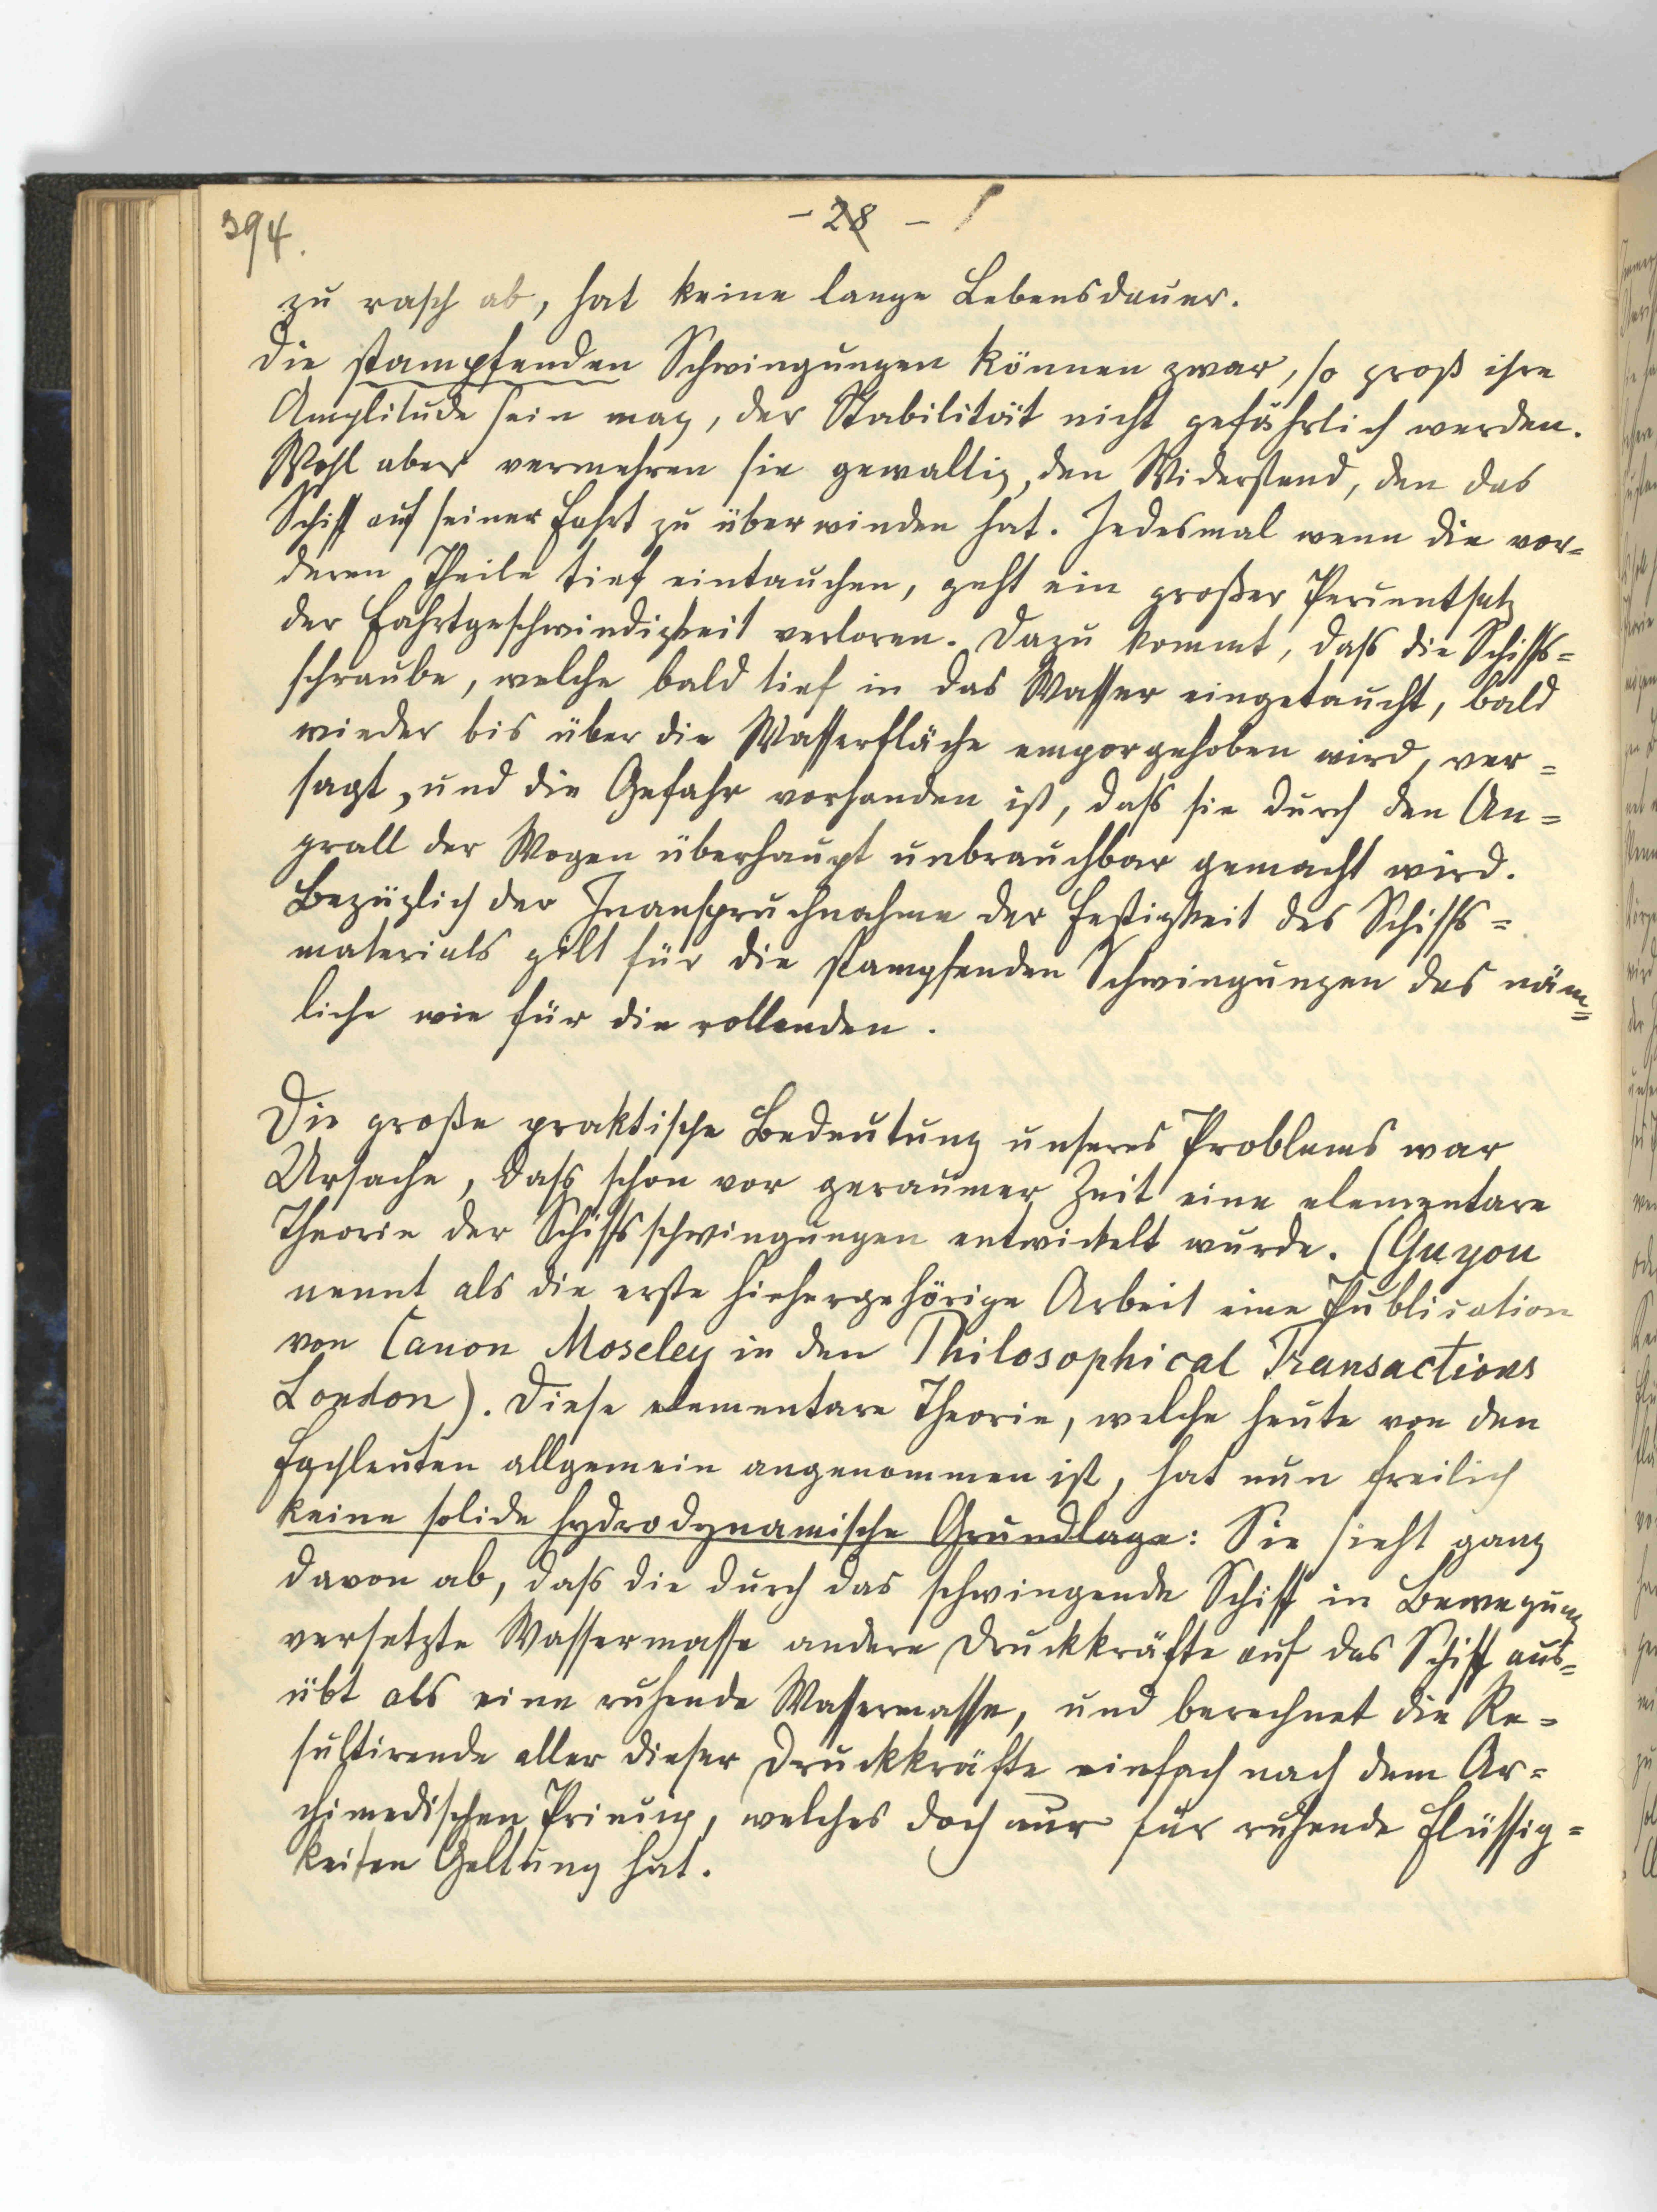 394.
- 28 -
zu rasch ab, hat keine lange Lebensdauer.
Die stampfenden Schwingungen können zwar, so groß ihre
Amplitude sein mag, der Stabilität nicht gefährlich werden.
Wohl aber vermehren sie gewaltig den Widerstand, den das
Schiff auf seiner Fahrt zu überwinden hat. Jedesmal wenn die vor=
deren Theile tief eintauchen, geht ein großer Percentsatz
der Fahrtgeschwindigkeit verloren. Dazu kommt, dass die Schiffs=
schraube, welche bald tief in das Wasser eingetaucht, bald
wieder bis über die Wasserfläche emporgehoben wird, ver=
sagt, und die Gefahr vorhanden ist, dass sie durch den An=
prall der Wogen überhaupt unbrauchbar gemacht wird.
Bezüglich der Inanspruchnahme der Festigkeit des Schiffs=
materials gilt für die stampfenden Schwingungen das näm=
liche wie für die rollenden.
Die große praktische Bedeutung unseres Problems war
Ursache, dass schon vor geraumer Zeit eine elementare
Theorie der Schiffsschwingungen entwickelt wurde. (Guyou
nennt als die erste hiehergehörige Arbeit eine Publication
von Canon Moseley in den Philosophical Transactions
London). Diese elementare Theorie, welche heute von den
Fachleuten allgemein angenommen ist, hat nun freilich
keine solide hydrodynamische Grundlage: Sie sieht ganz
davon ab, dass die durch das schwingende Schiff in Bewegung
versetzte Wassermasse andere Druckkräfte auf das Schiff aus=
übt als eine ruhende Wassermasse, und berechnet die Re=
sultirende aller dieser Druckkräfte einfach nach dem Ar=
chimedischen Princip, welches doch nur für ruhende Flüssig=
keiten Geltung hat.